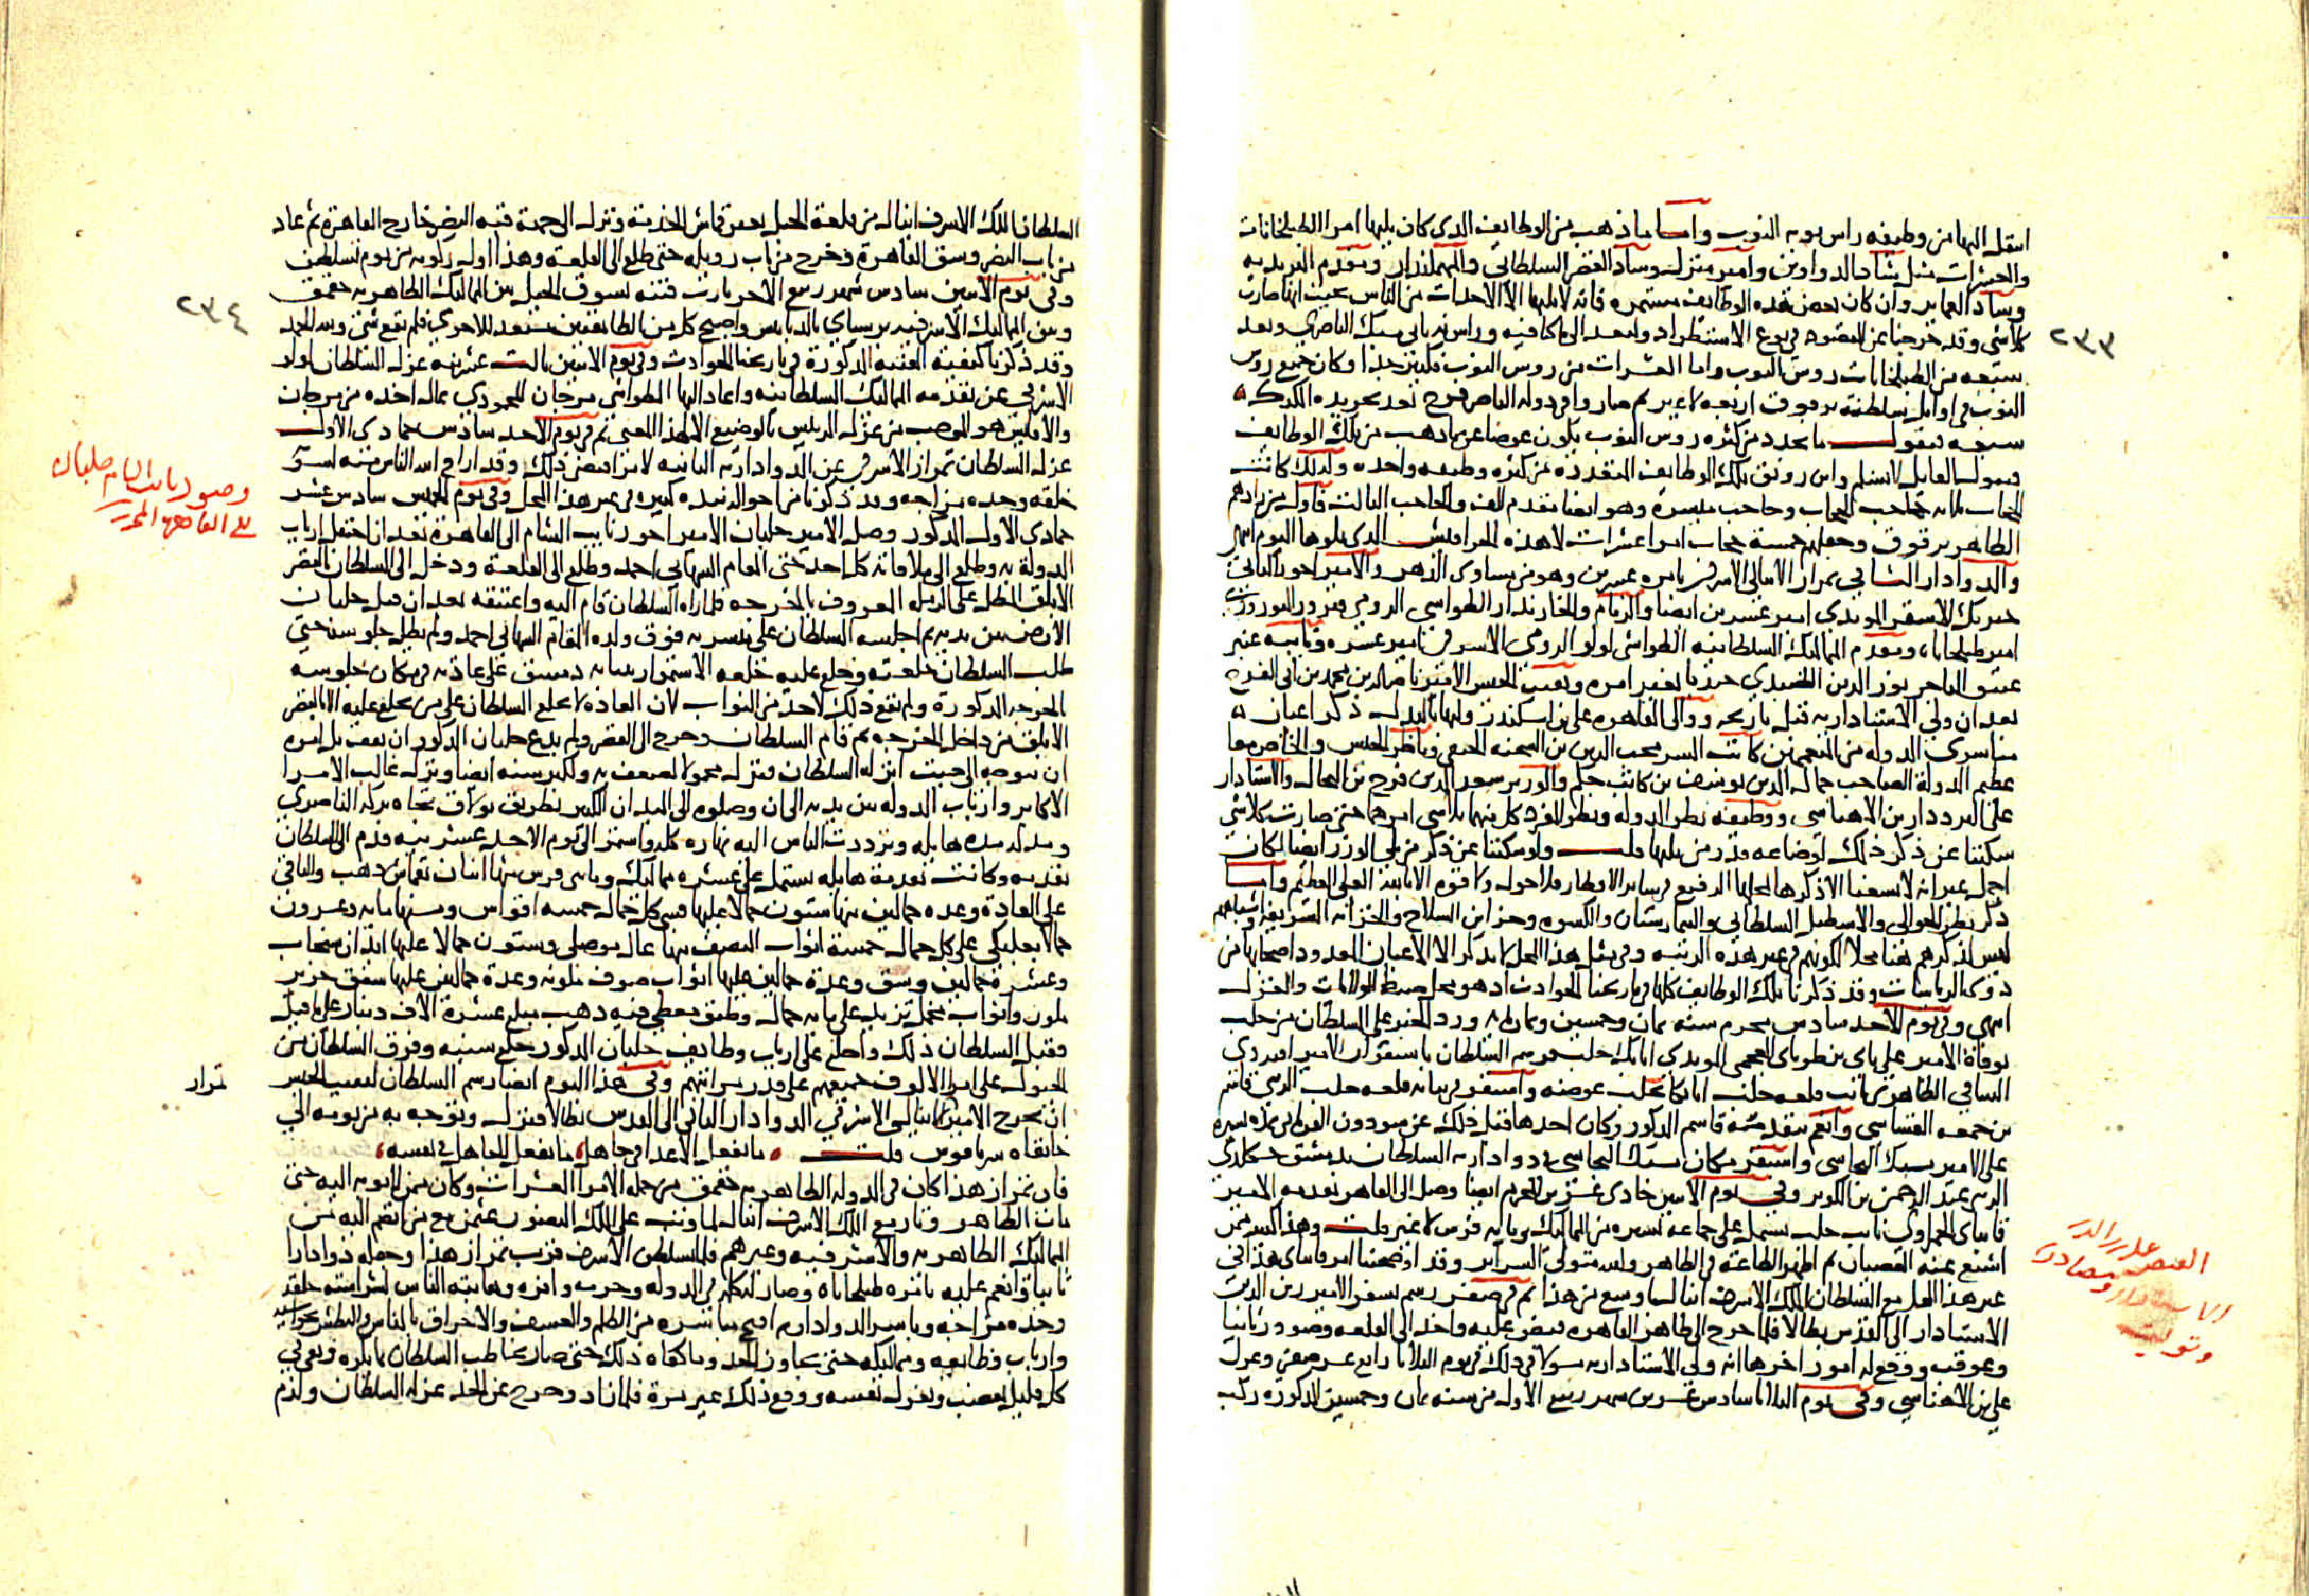 انتقل اليها من وظيفه راس نوبه النوب واما ما ذهب من الوظايف الدى كان يليها امرا الطبلخانات
والعشرات مثل شاد الدواوين وامير منزل وشاد القصر السلطانى والمهمندار ومقدم البريديه
وشاد العماير وان كان بعض هذه الوظايف مستمره فانه لا يليها الا الاحداث من الناس بحيث انها صارت
كلاشى وقد خرجنا عن المقصود فى نوع الاستطراد
٢٣٣
سبعه من الطبلخانات روس النوب واما العشرات من روس النوب فكثير جدا وكان جميع روس
النوب فى اوايل سلطنة برقوق اربعه لا غير ثم صاروا فى دوله الناصر فرج بعد تجريده الكرك
سبعه فنقول ما تجدد من كثره روس النوب يكون عوضا عن ما ذهب من تلك الوظايف
فيقول القايل لا نسلم واين رونق تلك الوظايف المتعدده من كثره وظيفه واحده ولذلك كانت
الحجاب ثلاثه حاجب الحجاب وحاجب ميسره وهو ايضا مقدم الف والحاجب الثالث فاول من زادهم
الظاهر برقوق وجعلهم خمسة حجاب امرا عشرات لا هذه الحرافيش الدى يلوها اليوم انتهى
والدوادار الثانى تمراز الاينالى الاشرفى بامره عشرين وهو من مساوى الدهر والامير اخور الثانى
خيربك الاشقر المويدى امير عشرين ايضا والزمام والخازندار الطواشى الرومى فيروز النوروزى
امير طبلخاناه ومقدم المماليك السلطانيه الطواشى لولو الرومى الاشرفى امير عشره ونايبه عنبر
عتيق التاجر نور الدين الطنبدى جنديا بغير امره ونقيب الجيش الامير ناصر الدين محمد بن ابى الفرج
بعد ان ولى الاستاداريه قبل تاريخه ووالى القاهره على بن اسكندر وليها بالبدل ذكر اعيان
مباشرى الدوله من المتعممين كاتب السر محب الدين بن الشحنه الحنفى وناظر الجيش والخاص معا
عظيم الدولة الصاحب جمال الدين يوسف بن كاتب جكم والوزير سعد الدين فرج بن النحال والاستادار
على البرددار بن الاهناسى ووظيفه نظر الدوله ونظر المفرد كل منهما تلاشى امرهما حتى صارت كلاشى
سكتنا عن ذكر ذلك لوضاعه قدر من يليها قلت ولو سكتنا عن ذكر من يلى الوزر ايضا لكان
اجمل غير انه لا يسعنا الا ذكرها لمحلها الرفيع فى ساير الاقطار فلا حول ولا قوه الا بالله العلى العظيم واما
ذكر نظر الجوالى والاسطبل السلطانى والبيمارستان والكسوه وخزاين السلاح والخزانه الشريفه واشباههم
ليس لذكرهم هنا محلا لكونهم فى غير هذه الرتبه وفى مثل هذا المحل لا يذكر الا الاعيان المعدود اصحابها من
ذوى الرياسات وقد ذكرنا تلك الوظايف كلها فى تاريخنا الحوادث اذ هو محل ضبط الولايات والعزل
انتهى وفى يوم الاحد سادس محرم سنه ثمان وخمسين وثمان مايه ورد الخبر على السلطان من حلب
بوفاة الامير على باى بن طوباى العجمى المويدى اتابك حلب فرسم السلطان باستقرار الامير اقبردى
الساقى الظاهرى نايب قلعه حلب اتابكا بحلب عوضه واستقر فى نيابه قلعه حلب الزينى قاسم
بن جمعه القساسى وانعم بتقدمة قاسم المذكور وكان اخذها قبل ذلك عن سودون القرمانى
على الامير يشبك البجاسى واستقر مكان يشبك البجاسى فى دواداريه السلطان بدمشق خشكلدى
الزينى عبد الرحمن بن الكويز وفى يوم الاثنين حادى عشرين المحرم ايضا وصل الى القاهره تقدمه الامير
قانباى الحمزاوى نايب حلب تشتمل على جماعه يسيره من المماليك ومايه فرس لا غير قلت وهذا كثير ممن
اشيع عنه العصيان ثم اظهر الطاعة فى الظاهر والله متولى السراير وقد اوضحنا امر قانباى هذا فى
غير هذا المحل مع السلطان الملك الاشرف اينال ثم فى صفر رسم بسفر الامير زين الدين
الاستادار الى القدس بطالا فلما خرج الى ظاهر القاهره قبض عليه واخذ الى القلعه وصودر ثانيا
وعوقب ووقع له امور اخرها انه ولى الاستاداريه مسولا فى ذلك فى يوم الثلاثا رابع عشر صفر وعزل
على بن الاهناسى وفى يوم الثلاثا سادس عشرين شهر ربيع الاول من سنه ثمان وخمسين المذكوره ركب
القبض على زين الدين
الاستادار ومصادرته
وتوليته
السلطان الملك الاشرف اينال من قلعة الجبل بغير قماش الخدمة ونزل الى جهة قبة النصر خارج القاهرة ثم عاد
من باب النصر وشق القاهرة وخرج من باب زويله حتى طلع الى القلعة وهذا اول ركوبه من يوم تسلطن
وفى يوم الاثنين سادس شهر ربيع الاخر ثارت فتنه بسوق الخيل بين المماليك الظاهريه جقمق
٢٣٤
وبين المماليك الاشرفيه برسباى بالدبابيس واصبح كل من الطايفتين مستعد للاخرى فلم يقع شى ولله الحمد
وقد ذكرنا كيفية الفتنه المذكورة فى تاريخنا الحوادث وفى يوم الاثنين ثالث عشرينه عزل السلطان لولو
الاشرفى عن تقدمه المماليك السلطانيه واعاد اليها الطواشى مرجان المحمودى بمال اخذه من مرجان
والافليس هو الموجب من عزل الرييس بالوضيع الا لهذا المعنى ثم فى يوم الاحد سادس جمادى الاول
عزل السلطان تمراز الاشرفى عن الدواداريه الثانيه لامر اقتضى ذلك وقد اراح الله الناس منه لسو
خلقه وحده مزاجه وقد ذكرنا من احواله نبده كبيره فى غير هذا المحل وفى يوم الخميس سادس عشر
جمادى الاول المذكور وصل الامير جلبان الامير اخور نايب الشام الى القاهرة بعد ان احتفل ارباب
الدولة به وطلع الى ملاقاته كل احد حتى المقام الشهابى احمد وطلع الى القلعة ودخل الى السلطان بالقصر
الابلق المطل على الرميله المعروف بالخرجه فلما راه السلطان قام اليه واعتنقه بعد ان قبل جلبان
الارض بين يديه ثم اجلسه السلطان على ميسرته فوق ولده المقام الشهابى احمد ولم يطل جلوسه حتى
طلب السلطان خلعته وخلع عليه خلعه الاستمرار بنيابه دمشق على عادته فى مكان جلوسه
بالخرجه المذكورة ولم يقع ذلك لاحد من النواب لان العاده لا يخلع السلطان على من يخلع عليه الا بالقصر
الابلق من داخل الخرجه ثم قام السلطان وخرج الى القصر ولم يدع جلبان المذكور ان يقف بل امره
ان يتوجه الى حيث انزله السلطان فنزل محمولا لضعف به ولكبر سنه ايضا ونزل غالب الامرا
الاكابر وارباب الدوله بين يديه الى ان وصلوه الى الميدان الكبير بطريق بولاق تجاه بركه الناصرى
ومد له مده هايله وترددت الناس اليه نهاره كله واستمر الى يوم الاحد عشرينه قدم الى السلطان
تقدمه وكانت تقدمة هايله تشتمل على عشره مماليك ومايتى فرس منها اثنان بقماش ذهب والباقى
على العادة وعده حمالين منها ستون حمالا عليها قسى كل حمال خمسه اقواس ومنها مايه وعشرون
حمالا بعلبكى على كل حمال خمسة اثواب النصف منها عال موصلى وستون حمالا عليها ابدان سنجاب
وعشرة حمالين وشق وعدة حمالين عليها اثواب صوف ملونه وعدة حمالين عليها شقق حرير
ملون واثواب مخمل تزيد على مايه حمال وطبق مغطى فيه ذهب مبلغ عشرة الاف دينار على ما قيل
فقبل السلطان ذلك واخلع على ارباب وظايف جلبان المذكور خلع سنيه وفرق السلطان من
الخيول على امرا الالوف جميعهم على قدر مراتبهم وفى هذا اليوم ايضا رسم السلطان لنقيب الجيش
ان يخرج الامير تمراز الاينالى الاشرفى الدوادار الثانى الى القدس بطالا فنزل وتوجه به من يومه الى
خانقاه سرياقوس قلت ما تفعل الاعدا فى جاهل ما يفعل الجاهل فى نفسه
فان تمراز هذا كان فى الدوله الظاهريه جقمق من جمله الامرا العشرات وكان ممن لا يوبه اليه حتى
مات الظاهر وثار مع الملك الاشرف اينال لما وثب على الملك المنصور عثمن مع من انضم اليه من
المماليك الظاهريه والاشرفيه وغيرهم فلما تسلطن الاشرف قرب تمراز هذا وجعله دوادارا
ثانيا وانعم عليه بامره طبلخاناه وصار له كلمه فى الدوله وحرمه وافره وهابته الناس لشراسته خلقه
وحده مزاجه وباشر الدواداريه اقبح مباشره من الظلم والعسف والاخراق بالناس والبطش بحواشيه
وارباب وظايفه ومماليكه حتى تجاوز الحد وما كفاه ذلك حتى صار يخاطب السلطان بما يكره وبقى فى
كل قليل يغضب ويعزل نفسه ووقع ذلك غير مرة فلما زاد وخرج عن الحد عزله السلطان ولزم
وصول نايب الشام جلبان
الى القاهره المحروسه
تمراز